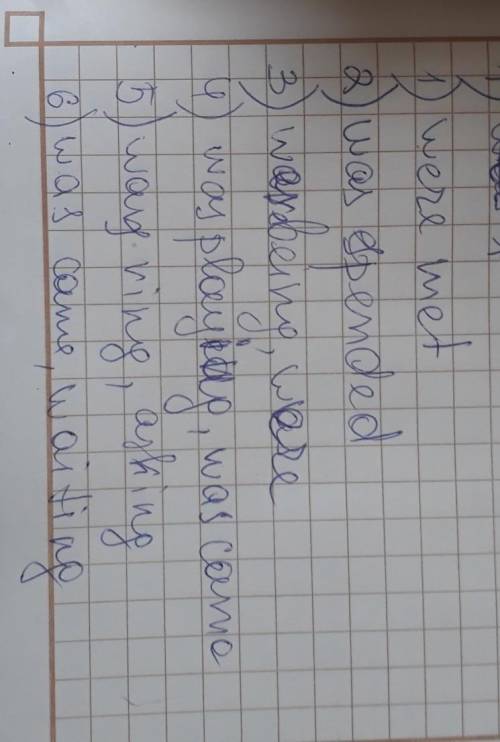 1) were met
2) was spended
3) was being, ware
4) was playing, was came
5) was ring, asking
6) was came, waiting